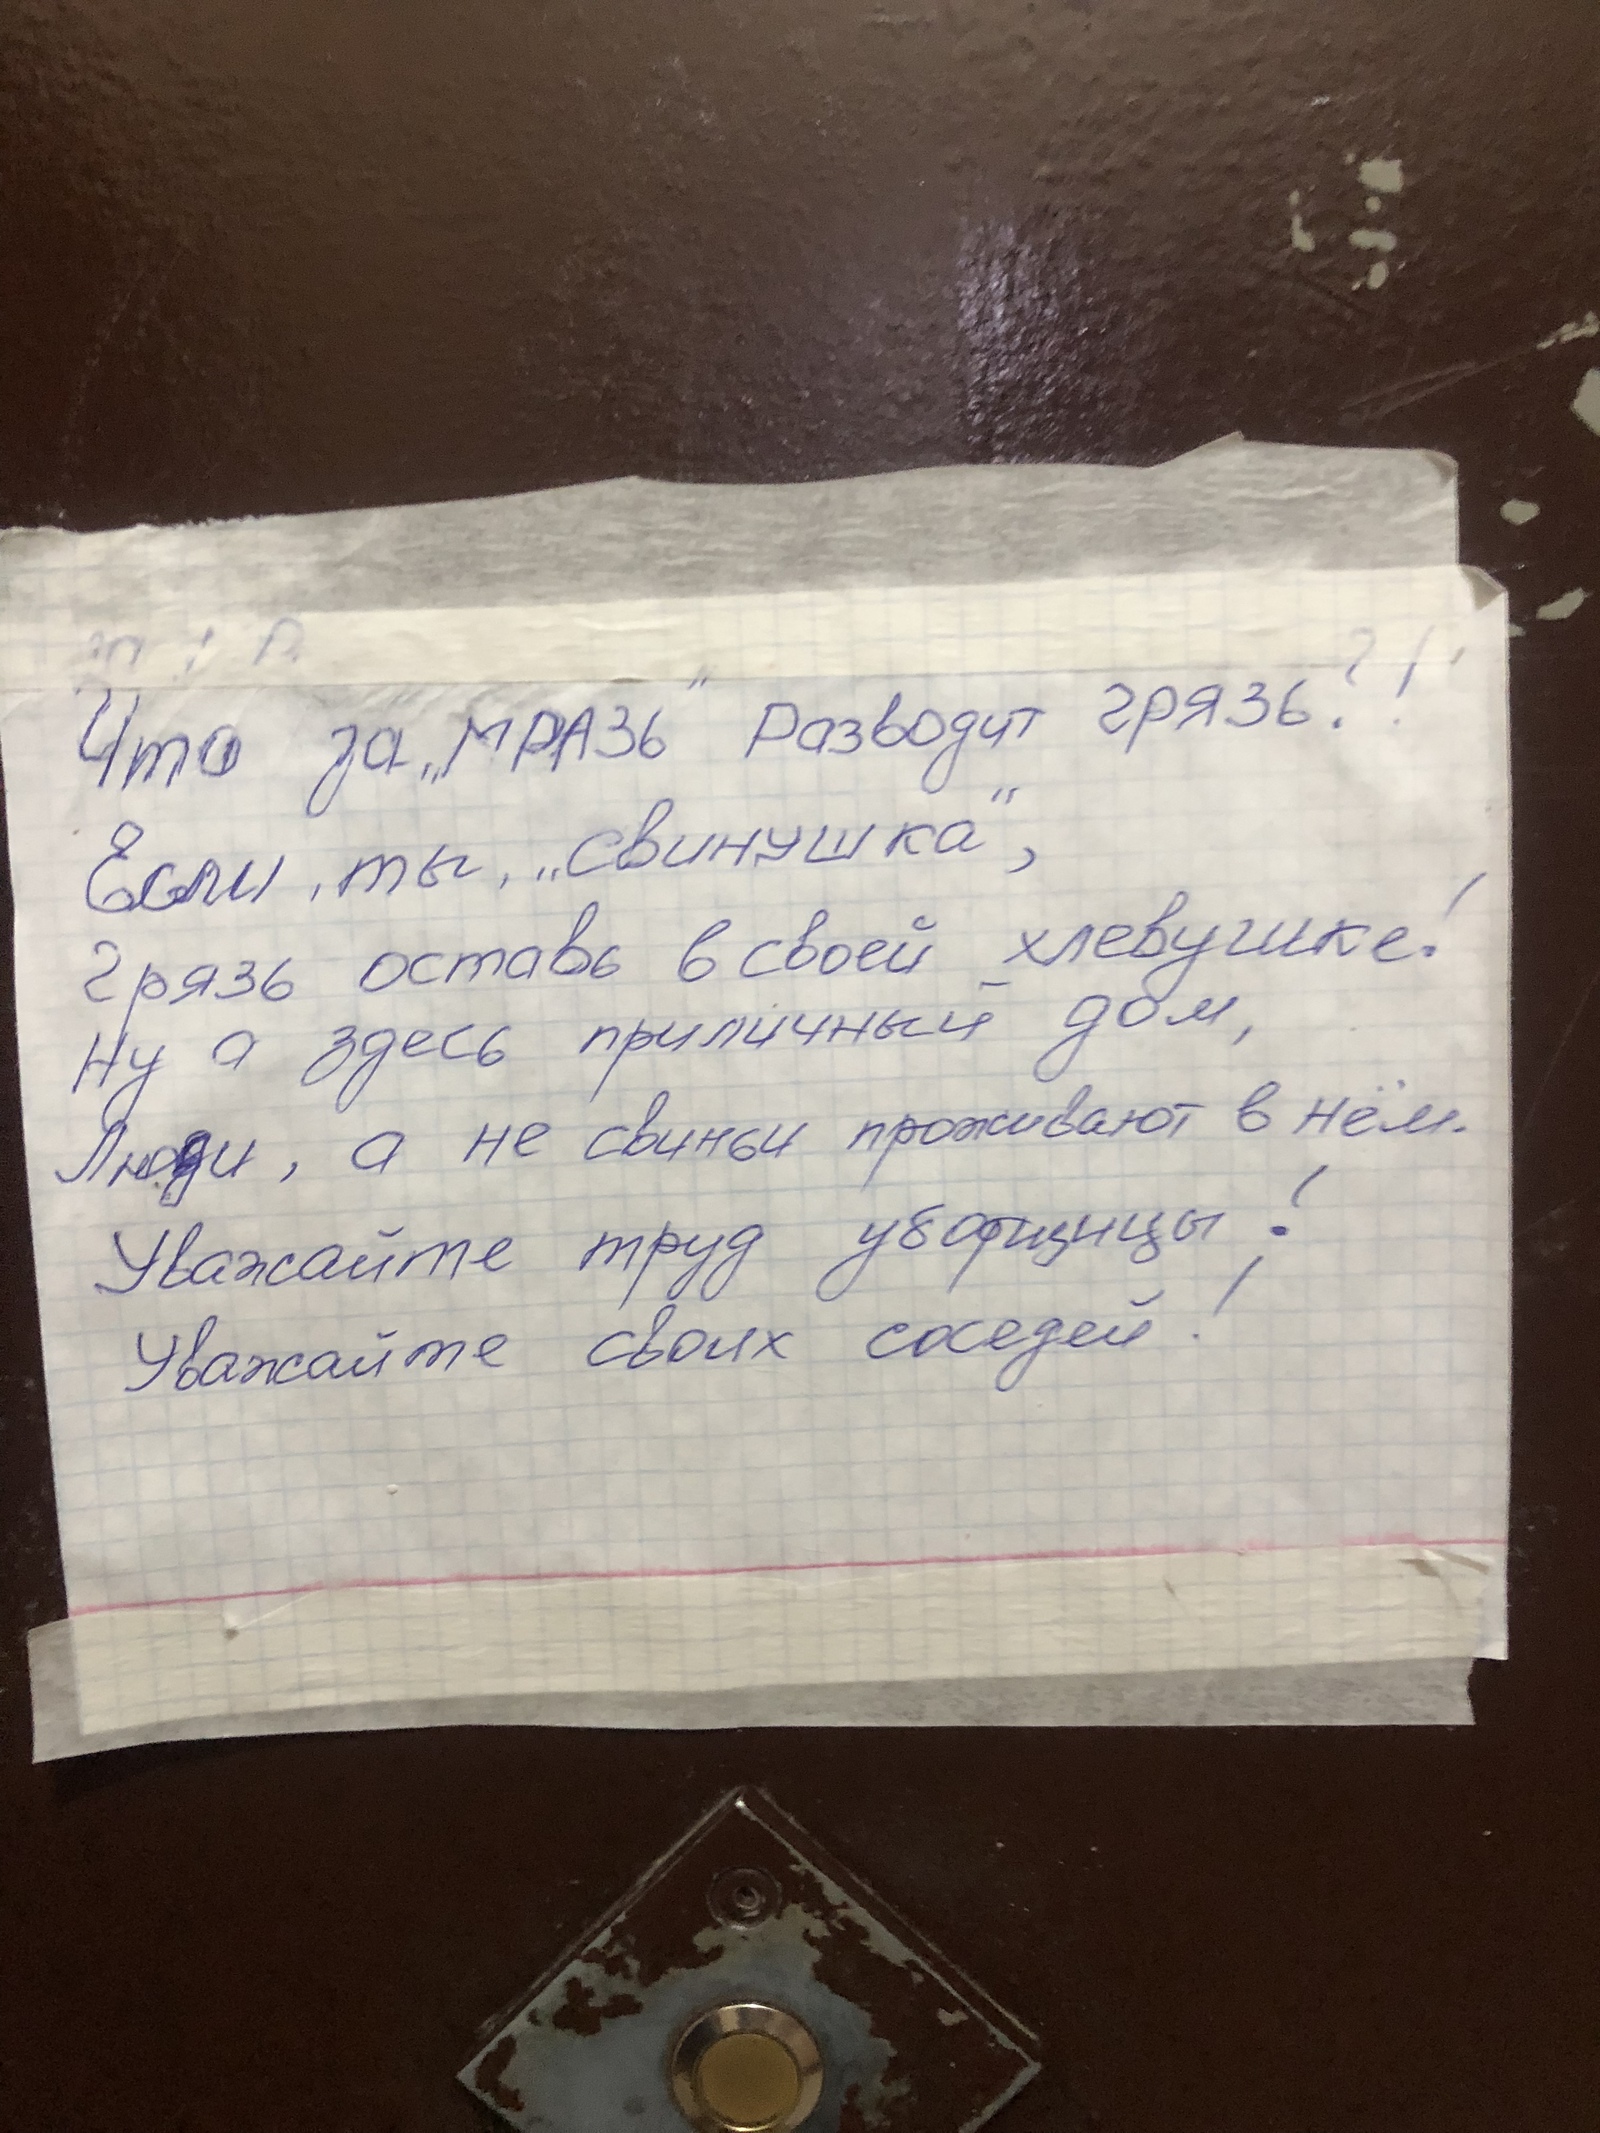 Что за „МРАЗЬ" Разводит грязь?!
Если, ты, „свинушка",
Грязь оставь в своей хлевушке!
Ну а здесь приличный дом,
Люди, а не свиньи проживают в нём.
Уважайте труд уборщицы!
Уважайте своих соседей!